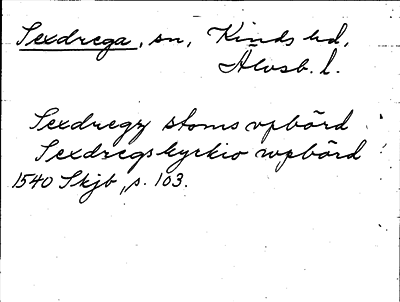 Sexdrega, sn, Kinds hd,
Älvsb. l.
Sexdregz stoms vpbörd
Sexdregs kyrkio wpbörd
1540 Skjb, s. 103.